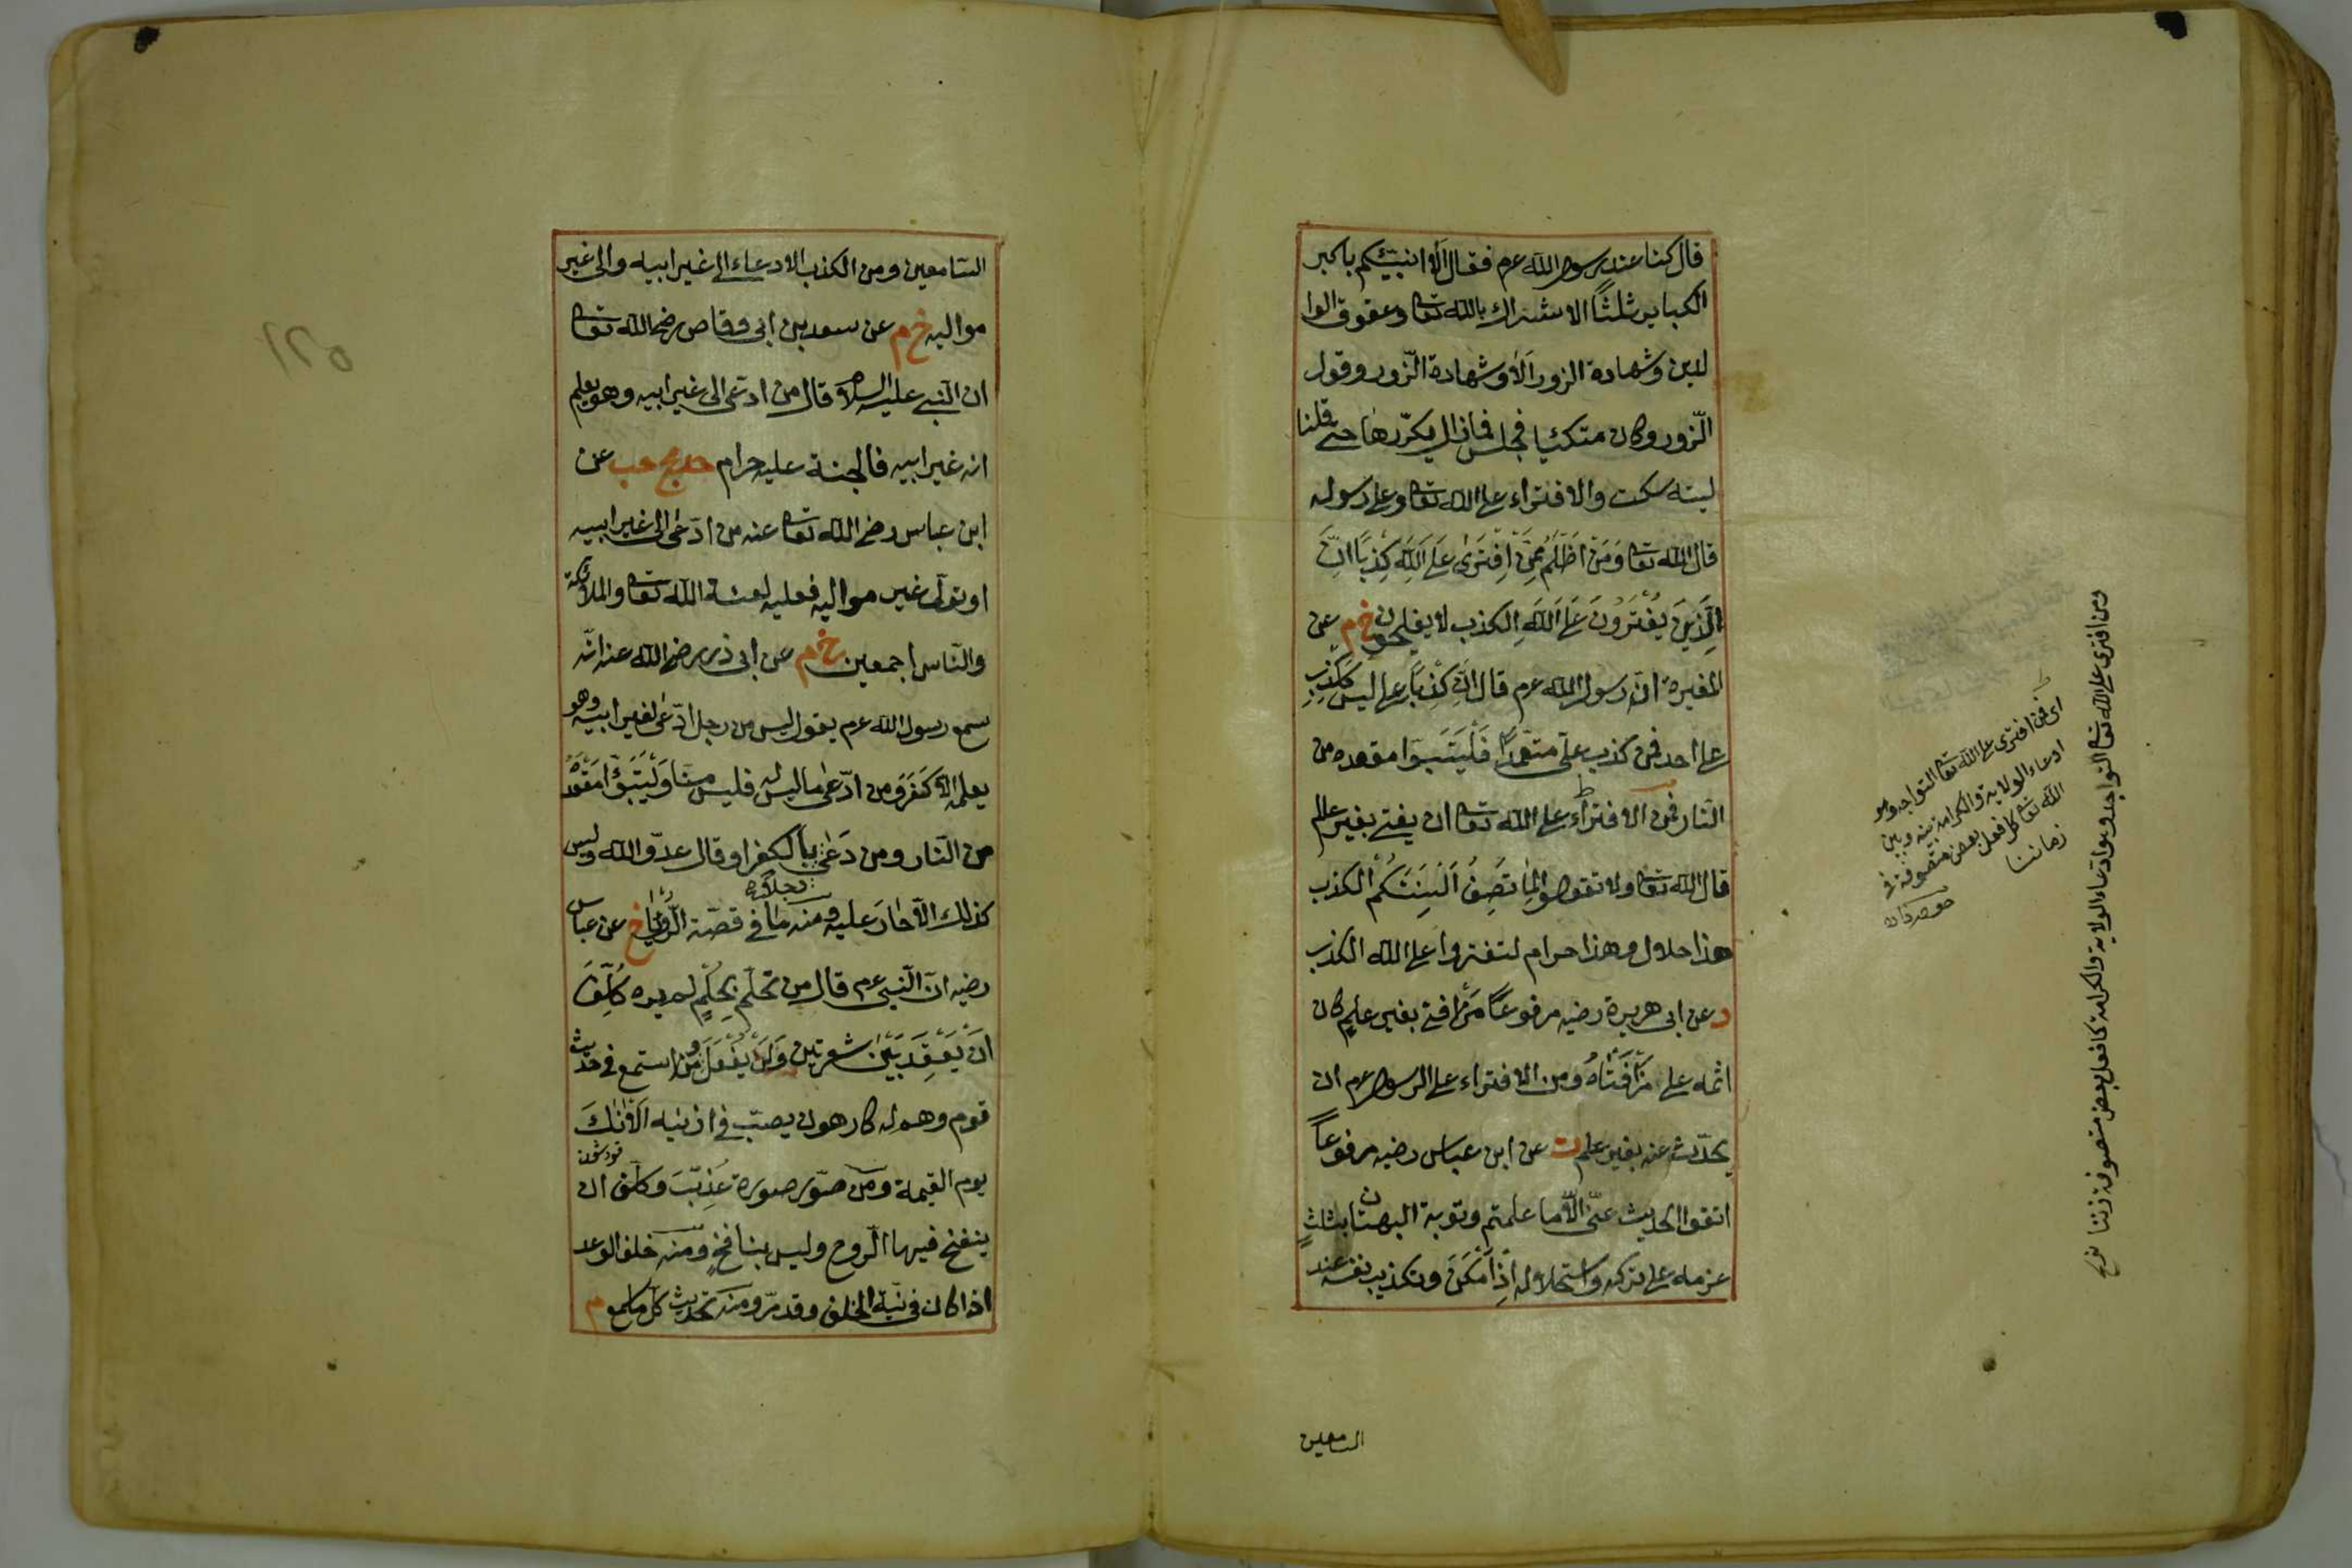 قال كنا عند رسول الله عم فقال ألا انبئكم باكبر
الكبائر ثلثًا الاشراك بالله تعا وعقوق الوا
لدين وشهادة الزور ألا وشهادة الزّور وقول
الزّور وكان متكئا فجلس فمازال يكرّرها حتى قلنا
ليته سكت والافتراء على الله تعا وعلى رسوله
قال الله تعا وَمَنْ اَظْلَمُ مِمَّنْ اِفْتَرٰى عَلَى اللهِ كَذِبًا اِنَّ
الَّذِينَ يَفْتَرُونَ عَلَى اللهِ الكذب لا يفلحون خ م عن
المغيرة انّ رسول الله عم قال انّ كَذِبًا على ليس ككذب
على احد فمن كذب علىّ متعمّدًا فَلْيَتَبَوّا مقعده من
النّار فمن الافتراء على الله تعا ان يفتى بغير علم
قال الله تعا ولا تقولوا لِمَا تَصِفُ اَلْسِنَتُكُمْ الكذب
هذا حلال وهذا حرام لتفتروا على الله الكذب
د عن ابى هريرة رضيه مرفوعًا مَنْ افتى بغير علمٍ كان
اثمه على مَنْ اَفْتَاهُ ومن الافتراء على الرسول عم ان
يحدّث عنه بغير علم ت عن ابن عباس رضيه مرفوعًا
اتقوا الحديث عنّى الّا ما علمتم وتوبة البهتان بثلثٍ
عزمه على تركه واستحلاله اِذْ اَمْكَنَ وتكذيب نفسه عند
السامعين
اى فمن افترى على الله تعا التواجد وهو
ادعاء الولاية والكرامة بينه وبين
الله تعا كما فعل بعض متصوفة فى
زماننا
ومن افترى على الله تعا التواجد وهو ادعاء الولاية والكرامة كما فعل بعض متصوفة زمننا
السّامعين ومن الكذب الادعاء الى غير ابيه والى غير
مواليه خ م عن سعد بن ابى وقاص رضى الله تعا
ان النّبى عليه السلام قال من ادّعى الى غير ابيه وهو يعلم
انه غير ابيه فالجنة عليه حرام حد مج حب عن
ابن عباس رضى الله تعا عنه من ادّعى الى غير ابيه
او تولّى غير مواليه فعليه لعنة الله تعا والملائكة
والنّاس اجمعين خ م عن ابى ذر رضى الله عنه انّه
سمع رسول الله عم يقول ليس من رجل ادّعى لغير ابيه وهو
يعلمه الّا كَفَرَ ومن ادّعى ما ليس له فليس منّا وَلْيَتَبَوَّأْ مَقْعَدَهُ
من النّار ومن دَعَى رجلاً بالكفر او قال عدوّ الله وليس
كذلك الّا حَارَ عليه ومنه ما فى قصّة الرُّؤْيَا خ عن عباس
رضيه انّ النّبى عم قال من تحلّم بِحُلْمٍ لم يره كُلِّفَ
اَنْ يَعْقِدَ بَيْنَ شعرتين وَلَنْ يَفْعَلَ ومن استمع فى حديث
قوم وهم له كارهون يصبّ فى اذنيه اَلْآنُكَ
يوم القيمة ومن صوّر صورة عُذِّبَ وكلّف ان
ينفخ فيها الرّوح وليس بنافخٍ ومنه خلف الوعد
اذا كان فى نيّته الخلف وقد مرّ ومنه تحديث كلّ ما سمع م